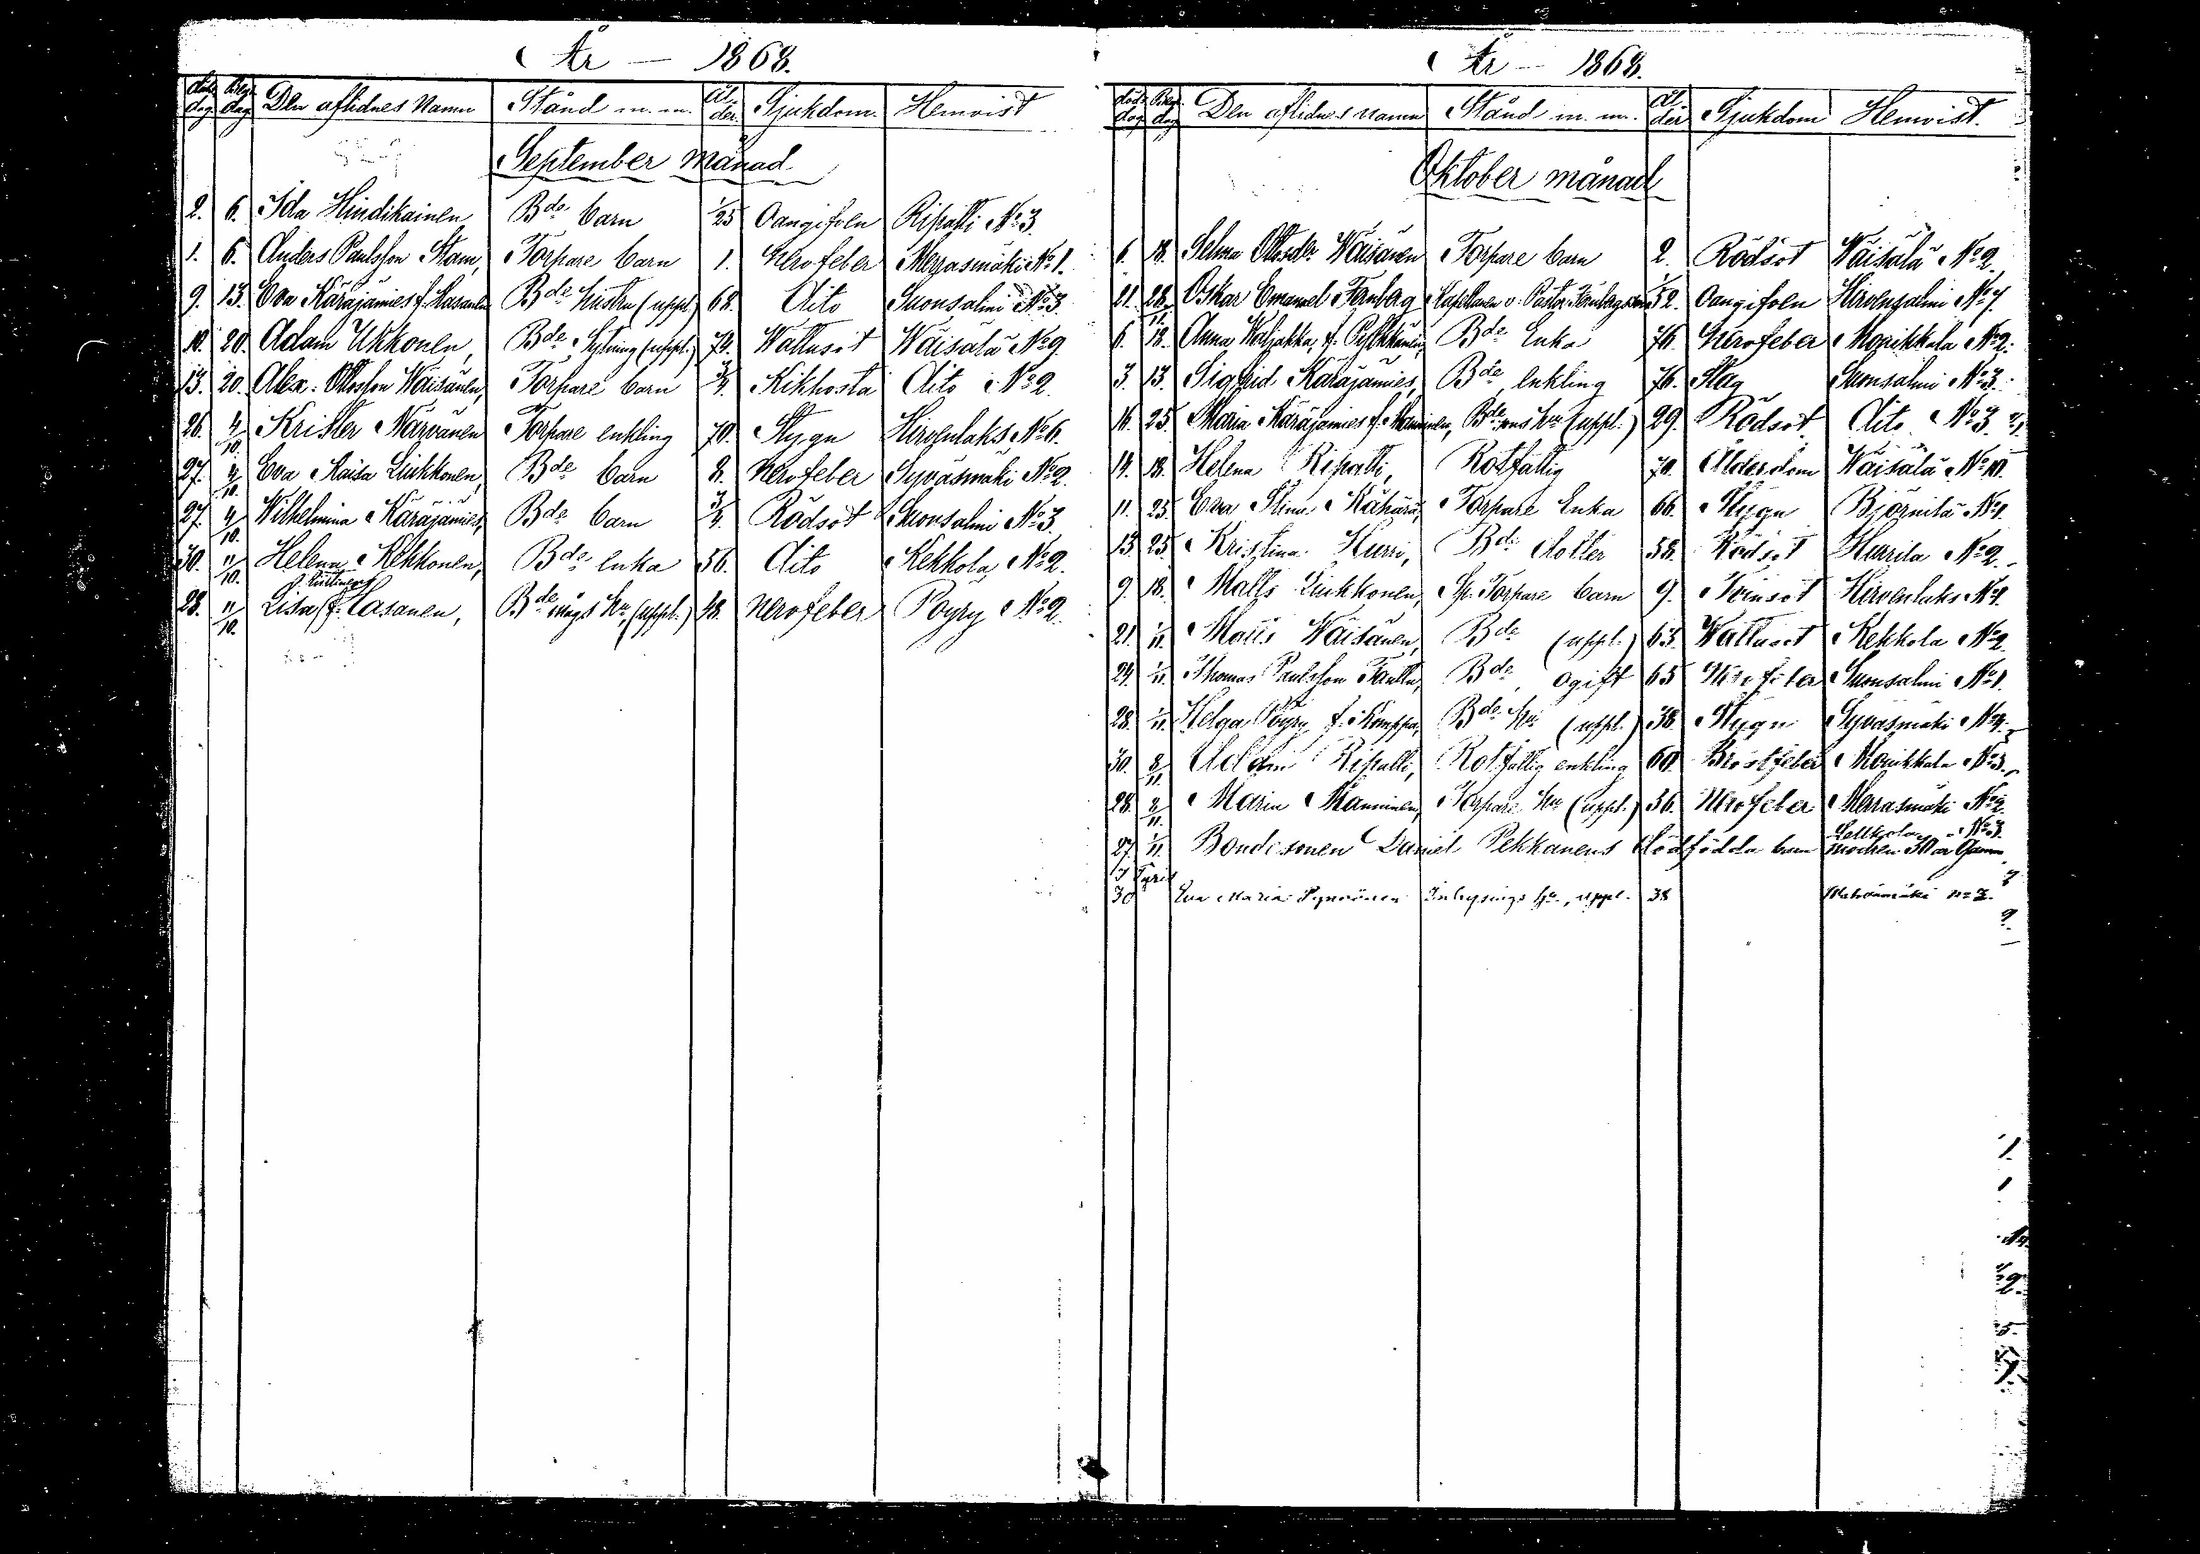 År — 1868.
Död. dag Begr. dag Den aflidnes Namn Stånd m. m. Ål- der. Sjukdom. Hemvist
September månad.
2. 6. Ida Hindikainen Bde barn 1/25 Oangifven Ripatti No 3.
1. 6. Anders Paulsson Stam, Torpare barn 1. Nervfeber Merrasmäki No 1.
9. 13. Eva Käräjämies f. Hasanen Bde hustru (uppl.) 68. Dito Suonsalmi No 3.
11. 20. Adam Ukkonen, Bde Sytning (uppl.) 72. Wattusot Wäisälä No 9.
13. 20. Alex. Ottosson Wäisänen, Torpare barn 3/4. Kikhosta Dito No 2.
26. 4/10. Krister Närvänen Torpare enkling 70. Stygn Hirvenlaks No 6.
27. 4/10. Eva Kaisa Liukkonen, Bde barn 8. Nervfeber Syväsmäki No 2.
27. 4/10. Wilhelmina Käräjämies, Bde barn 3/4. Rödsot Suonsalmi No 3.
30. 11/10. Helena Kekkonen, Bde enka 56. Dito Kekkola No 2.
28. 11/10. Lisa f. Hasanen, Bde mågs hu (uppl.) 48. Nervfeber Pöyry No 2.
År — 1868.
Döds dag Begr. dag Den aflidnes namn Stånd m. m. Ål der Sjukdom Hemvist.
Oktober månad
6. 18. Selma Ottosdr Wäisänen Torpare barn 2. Rödsot Wäisälä No 2.
21. 28. Oskar Emanuel Fernberg Kapellanen v. Pastor Fernbergs 1/52. Oangifven Hirvensalmi No 7.
6. 18. Anna Waljakka, f. Enka 76. Nervfeber Monikkala No 2.
3. 13. Sigfrid Käräjämies, Bde enkling 76. Slag Suonsalmi No 3.
16. 25. Maria Käräjämies f. Manninen, Bde sons hu (uppl.) 29. Rödsot. Dito No 3.
14. 18. Helena Ripatti, Rotfattig 70. Ålderdom Wäisälä No 10.
11. 25. Eva Stina Kähärä, Torpare Enka 66. Stygn Björnilä No 1.
13. 25. Kristina Hurri, Bde dotter 58. Rödsot Hurrila No 2.
9. 18. Matts Liukkonen, Torpare barn 9. Tvinsot Hirvenlaks No 1.
21. 1/11. Matts Wäisänen, Bde (uppl.) 63. Wattusot Kekkola No 2.
24. 1/11. Thomas Paulsson Bde ogift 65 Nervfeber Suonsalmi No 1.
28. 1/11. Helga Pöyry f. Komppa, Bde hu (uppl.) 38. Stygn Syväsmäki No 4.
30. 8/11. Adam Ripatti, Rotfattig enkling 60. Bröstfeber Monikkala No 3.
28. 8/11. Maria Manninen, Torpare hu (uppl.) 36. Nervfeber Merrasmäki No 2.
27. 1/11. Bondesonen Daniel Pekkanens dödfödda barn modren 30 år Gamm
30 Eva Maria Pynnönen Inhysings hu, uppl. 38 No 2.